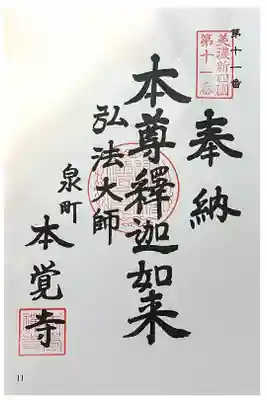 第十一番
美濃新四国
第十一番
奉納
本尊釋迦如来
弘法大師
泉町
本覚寺
11